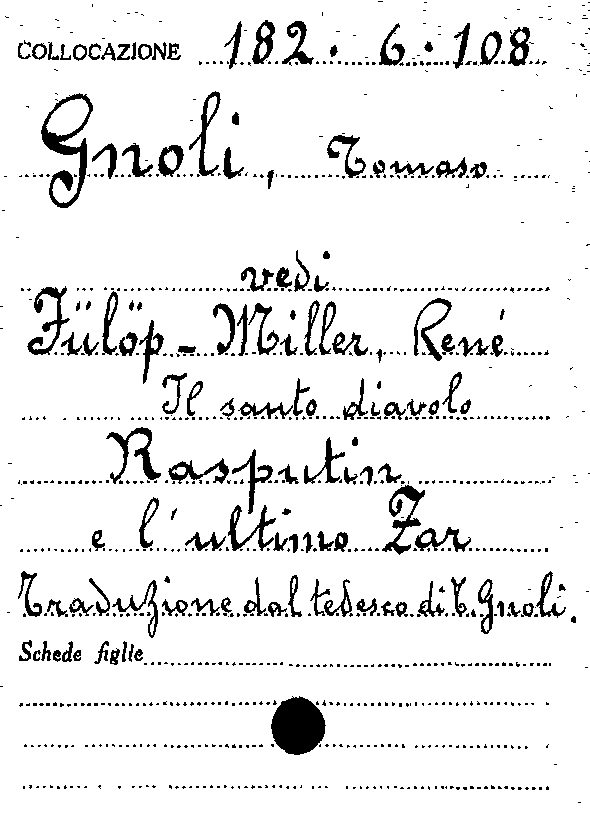 COLLOCAZIONE 182. 6. 108
Gnoli, Tomaso
vedi
Fülöp-Miller, René
Il santo diavolo
Rasputin
e l'ultimo Zar
Traduzione dal tedesco di T. Gnoli.
Schede figlie